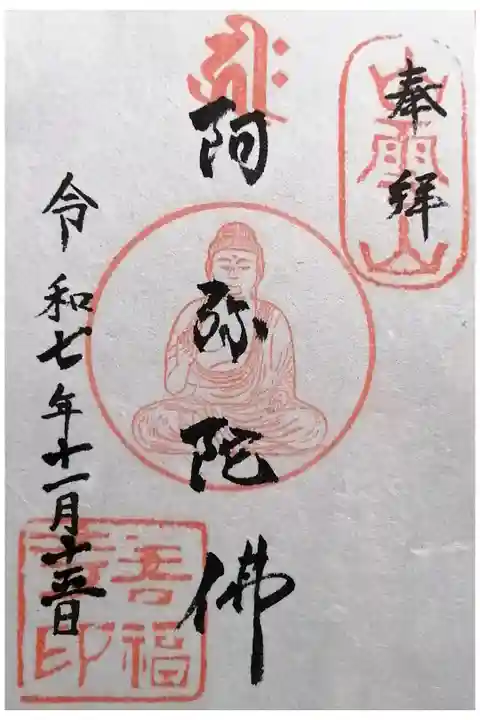 奉拝
阿弥陀佛
令和七年十一月十五日
善福寺印